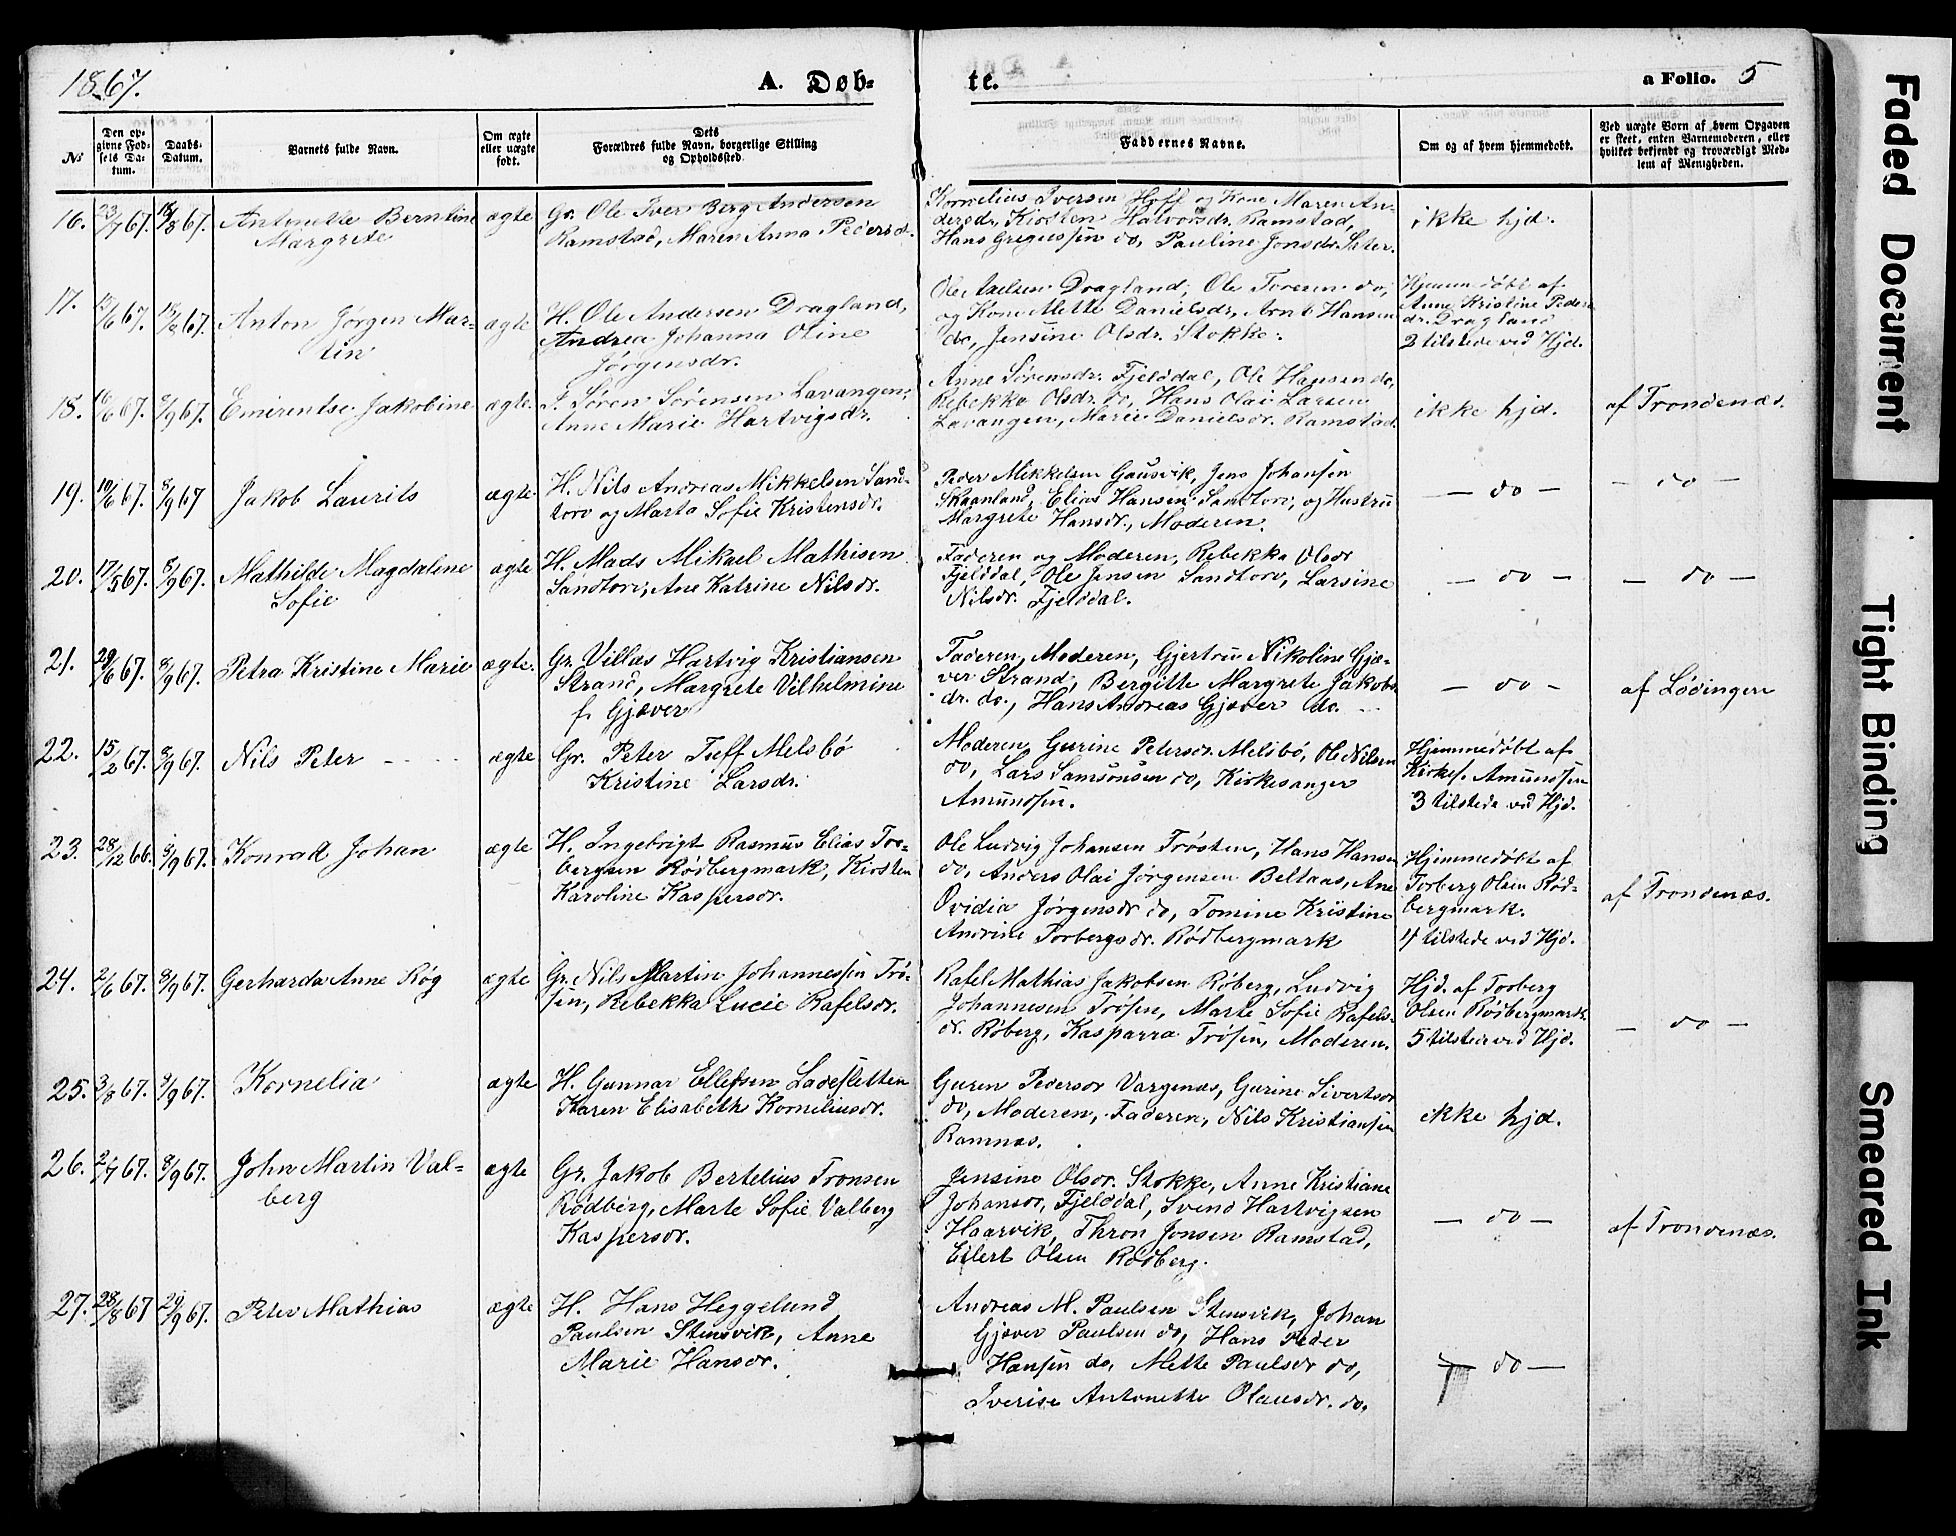 1867.
A. Døb-
te.
a Folio. 5
No
Den op-
givne Fød-
sels Da-
tum.
Daabs-
Datum.
Barnets fulde Navn.
Om ægte
eller uægte
født.
Dets
Forældres fulde Navn, borgerlige Stilling
og Opholdssted.
Faddernes Navne.
Om og af hvem hjemmedøbt.
Ved uægte Born af hvem Opgaven
er skeet, enten Barnemoderen, eller
hvilket bekjendt og troværdigt Med-
lem af Menigheden.
16. 23/7 67. 18/8 67. Antonette Berntine
Margrete
ægte
Gr. Ole Iver Berg Andersen
Ramstad, Maren Anna Pedersd.
Kornelius Iversen Hoff og Kone Maren An-
dersdr, Kirsten Halvorsdr. Ramstad,
Hans Gregussen do, Pauline Jonsdr. Sæter.
ikke hjd.
17. /6 67. 18/8 67. Anton Jørgen Mar-
tin
ægte
H. Ole Andersen Dragland,
Andrea Johanna Oline
Jørgensdr.
Ole Axelsen Dragland, Ole Toresen do,
og Kone Mette Danielsdr, Arnt Hansen
do, Jensine Olsdr. Stokke.
Hjemmedøbt af
Anne Kristine Peders
dr. Dragland
2 tilstede ved Hjd.
18. 16/6 67. 8/9 67. Emerentse Jakobine
ægte
I. Søren Sørensen Lavangen,
Anne Marie Hartvigsdr.
Anne Sørensdr. Fjelddal, Ole Hansen do,
Rebekka Olsdr. do, Hans Olai Larsen
Lavangen, Marie Danielsdr. Ramstad.
ikke hjd.
af Trondenæs.
19. 10/6 67. 8/9 67 Jakob Laurits
ægte
H. Nils Andreas Mikkelsen Sand-
torv og Marta Sofie Kristensdr.
Peder Mikkelsen Gausvik, Jens Johansen
Skaanland, Elias Hansen Sandtorv, og Hustru
Margrete Hansdr., Moderen.
— do —
— do —
20. 17/5 67. 8/9 67. Mathilde Magdaline
Sofie
ægte
H. Mads Mikael Mathisen
Sandtorv, Ane Katrine Nilsdr.
Faderen og Moderen, Rebekka Olsdr
Fjelddal, Ole Jensen Sandtorv, Larsine
Nilsdr. Fjelddal.
— do —
— do —
21. 29/6 67. 8/9 67. Petra Kristine Marie
ægte.
Gr. Villas Hartvig Kristiansen
Strand, Margrete Vilhelmine
f. Gjæver
Faderen, Moderen, Gjertru Nikoline Gjæ-
ver Strand, Bergitte Margrete Jakobs
dr. do., Hans Andreas Gjæver do.
— do —
af Lødingen
22. 15/2 67. 8/9 67. Nils Peter
ægte
Gr. Peter Jeff Melsbø
Kristine Larsdr.
Moderen, Gurine Petersdr. Melsbø, Ole Nilsen
do, Lars Samsonsen do, Kirkesanger
Amundsen.
Hjemmedøbt af
Kirkes. Amundsen
3 tilstede ved Hjd.
23. 28/12 66. 8/9 67. Konrad Johan
ægte
H. Ingebrigt Rasmus Elias Tor-
bergsen Rødbergmark, Kirsten
Karoline Kaspersdr.
Ole Ludvig Johansen Trøsten, Hans Hansen
do, Anders Olai Jørgensen Beltaas, Ane
Ovidia Jørgensdr do, Tomine Kristine
Andrine Torbergsdr. Rødbergmark
Hjemmedøbt af
Torberg Olsen Rød-
bergmark.
4 tilstede ved Hjd.
af Trondenæs.
24. 2/6 67. 8/9 67. Gerharda Anne Røg
ægte
Gr. Nils Martin Johannessen Trø-
sen, Rebekka Lucie Rafelsdr.
Rafel Mathias Jakobsen Røberg, Ludvig
Johannesen Trøsen, Marte Sofie Rafels-
dr. Røberg, Kasparra Trøsen, Moderen.
Hjd. af Torberg
Olsen Rødbergmark.
5 tilstede ved Hjd.
— do —
25. 3/8 67. 9/9 67. Kornelia
ægte
H. Gunnar Ellefsen Ladesletten
Karen Elisabeth Korneliusdr.
Guren Pedersdr Vargenæs, Gurine Sivertsdr
do, Moderen, Faderen, Nils Kristiansen
Ramnæs.
ikke hjd.
26. 2/7 67. 8/9 67. John Martin Val-
berg
ægte
Gr. Jakob Bertelius Tronsen
Rødberg, Marte Sofie Valberg
Kaspersdr.
Jensine Olsdr. Stokke, Anne Kristiane
Johansdr, Fjelddal, Svend Hartvigsen
Haarvik, Thron Jonsen Ramstad,
Eilert Olsen Rødberg.
— do —
af Trondenæs.
27. 28/8 67 29/9 67. Peter Mathias
ægte
H. Hans Heggelund
Paulsen Stensvik, Anne
Marie Hansdr.
Andreas M. Paulsen Stensvik, Johan
Gjæver Paulsen do, Hans Peder
Hansen do, Mette Paulsdr do,
Iverise Antonette Olausdr. do.
— do —
Faded Document
Tight Binding
Smeared Ink